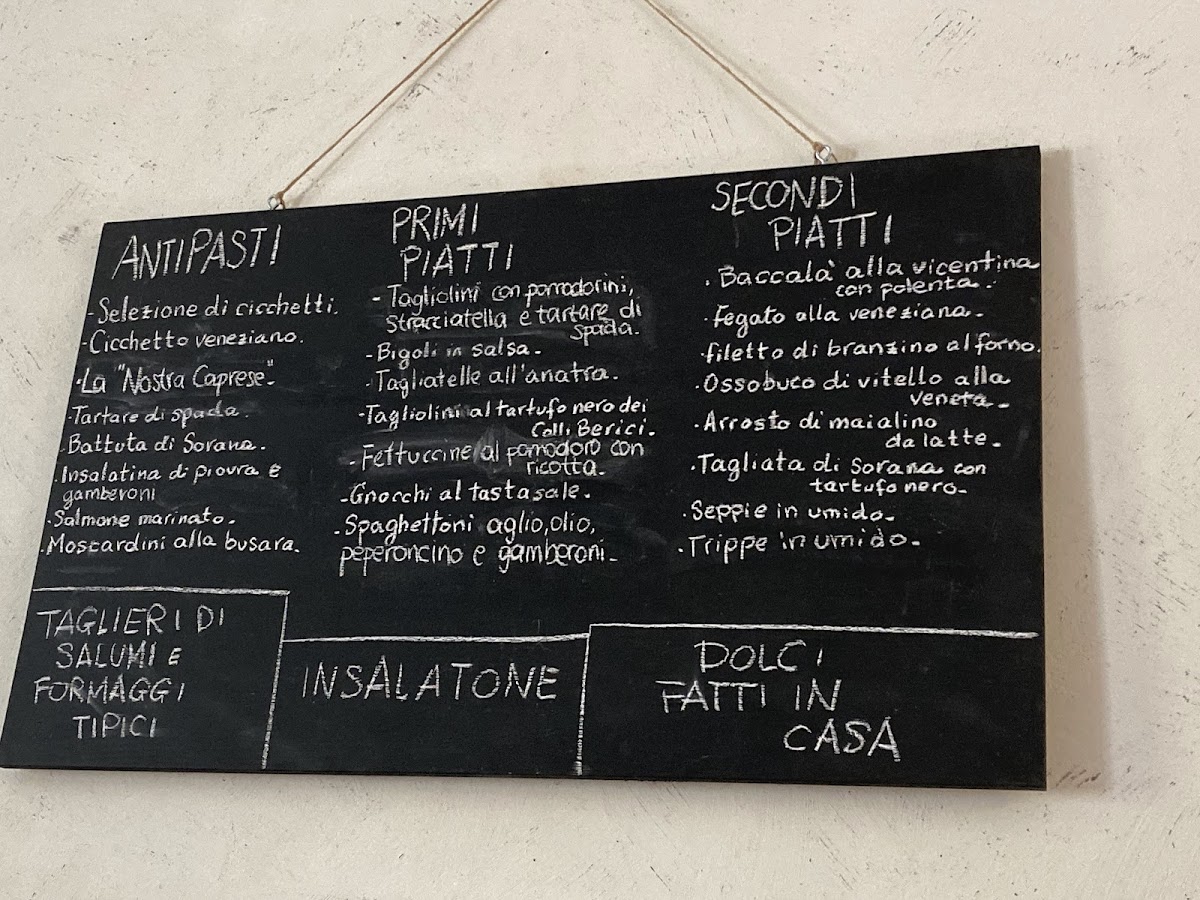 ANTIPASTI
-Selezione di cicchetti.
-Cicchetto veneziano.
-La "Nostra Caprese".
-Tartare di spada.
-Battuta di Sorana.
-Insalatina di piovra e
gamberoni
-Salmone marinato.
-Moscardini alla busara.
PRIMI
PIATTI
-Tagliolini con pomodorini,
stracciatella e tartare di
spada.
-Bigoli in salsa.
-Tagliatelle all'anatra.
-Tagliolini al tartufo nero dei
Colli Berici.
-Fettuccine al pomodoro con
ricotta.
-Gnocchi al tastasale.
-Spaghettoni aglio, olio,
peperoncino e gamberoni.
SECONDI
PIATTI
-Baccalà alla vicentina
con polenta.
-Fegato alla veneziana.
-filetto di branzino al forno.
-Ossobuco di vitello alla
veneta.
-Arrosto di maialino
da latte.
-Tagliata di Sorana con
tartufo nero.
-Seppie in umido.
-Trippe in umido.
TAGLIERI DI
SALUMI E
FORMAGGI
TIPICI
INSALATONE
DOLCI
FATTI IN
CASA